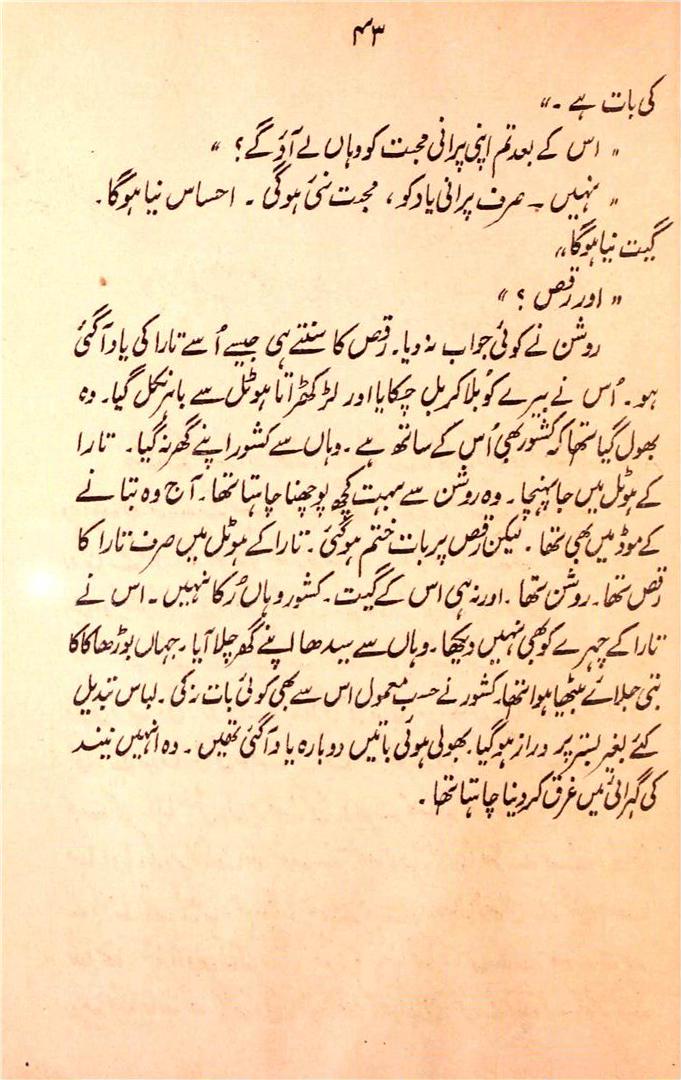 ۴۳
کی بات ہے ۔"
" اس کے بعد تم اپنی پرانی محبت کو وہاں لے آؤ گے ؟ "
" نہیں ۔ صرف پرانی یاد کو ، محبت نئی ہوگی ۔ احساس نیا ہوگا ۔
گیت نیا ہوگا"
" اور رقص ؟ "
روشن نے کوئی جواب نہ دیا۔ رقص کا سنتے ہی جیسے اُسے تارا کی یاد آگئی
ہو ۔ اُس نے بیرے کو بلا کر بل چکایا اور لڑکھڑاتا ہوٹل سے باہر نکل گیا۔ وہ
بھول گیا تھا کہ کشور بھی اُس کے ساتھ ہے ۔ وہاں سے کشور اپنے گھر نہ گیا ۔ تارا
کے ہوٹل میں جا پہنچا ۔ وہ روشن سے بہت کچھ پوچھنا چاہتا تھا ۔ آج وہ بتانے
کے موڈ میں بھی تھا ۔ لیکن رقص پر بات ختم ہوگئی ۔ تارا کے ہوٹل میں صرف تارا کا
رقص تھا۔ روشن تھا ۔ اور نہ ہی اس کے گیت ۔ کشور وہاں رُکا نہیں ۔ اس نے
تارا کے چہرے کو بھی نہیں دیکھا ۔ وہاں سے سیدھا اپنے گھر چلا آیا ۔ جہاں بوڑھا کاکا
بتی جلائے بیٹھا ہوا تھا۔ کشور نے حسب معمول اس سے بھی کوئی بات نہ کی ۔ لباس تبدیل
کئے بغیر بستر پر دراز ہو گیا۔ بھولی ہوئی باتیں دوبارہ یاد آگئی تھیں ۔ وہ انہیں نیند
کی گہرائی میں غرق کر دینا چاہتا تھا ۔